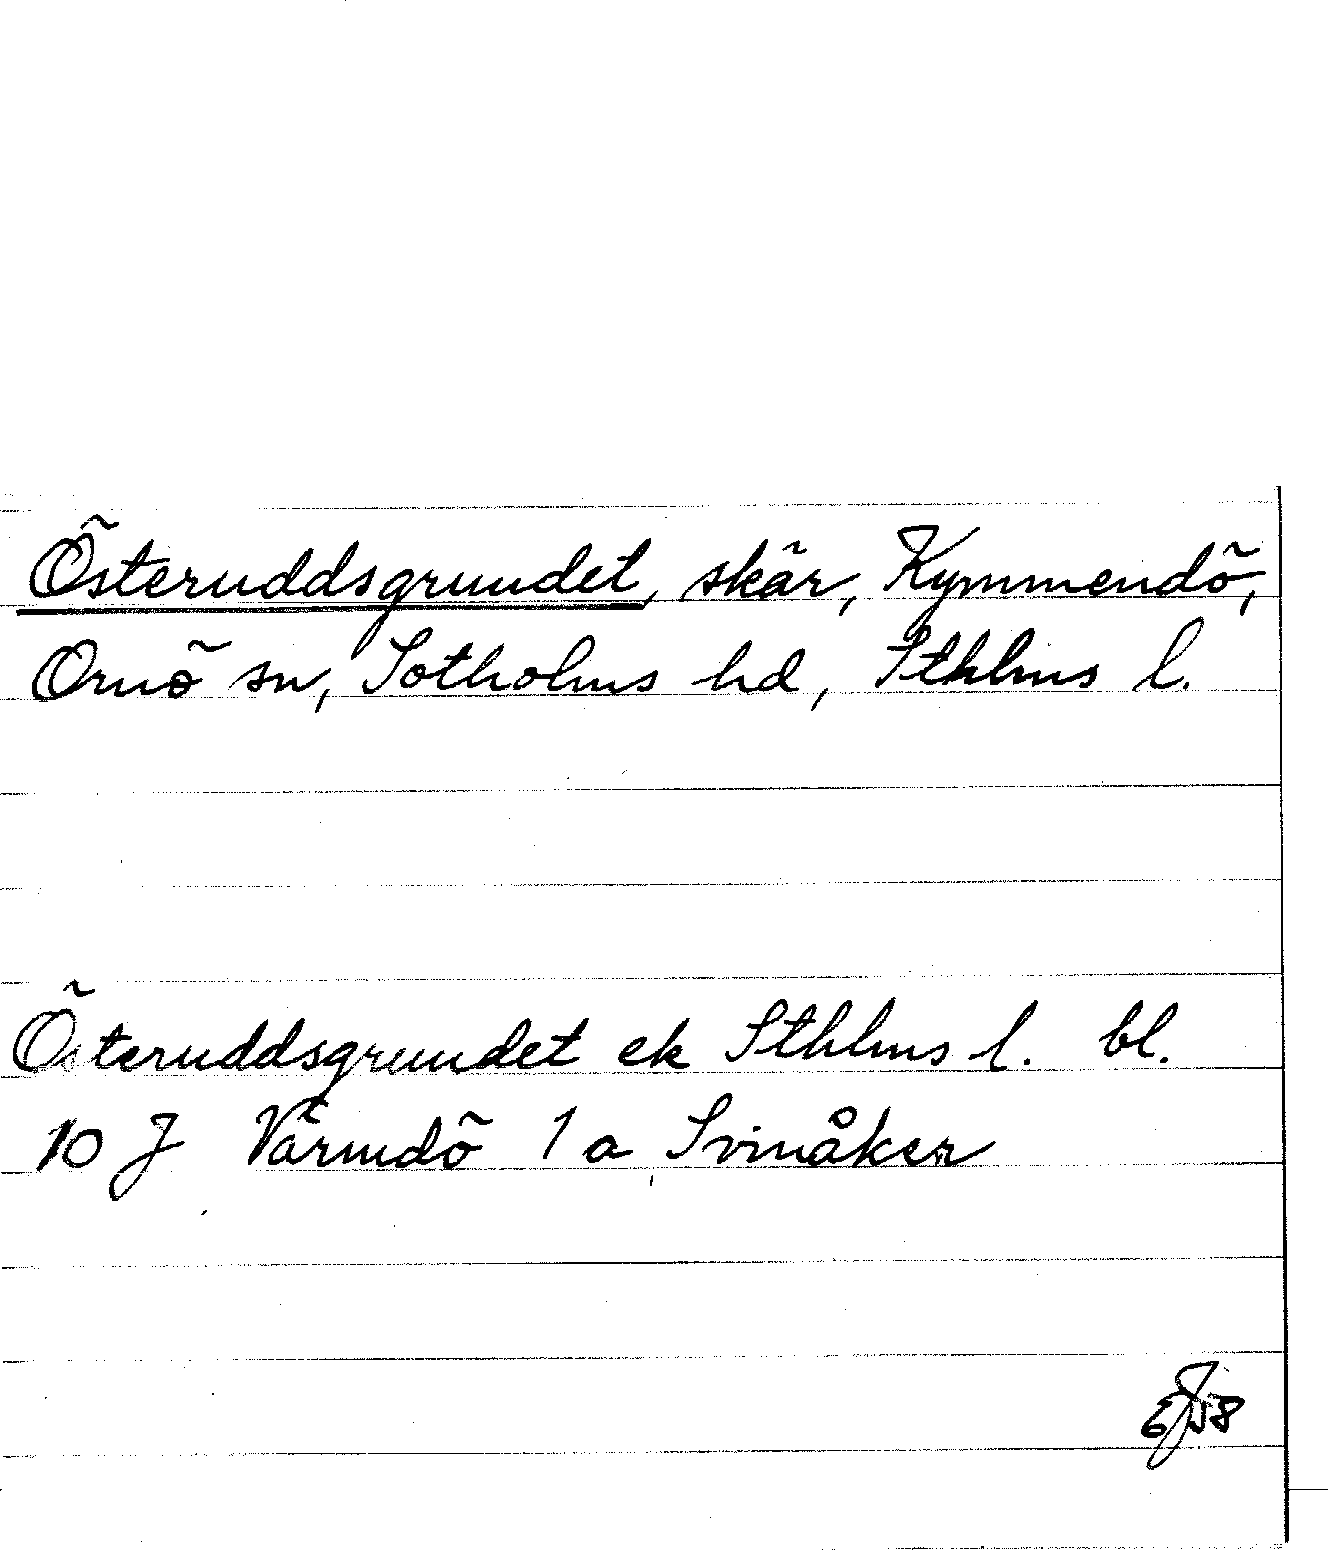 Österuddsgrundet, skär, Kymmendö,
Ornö sn, Sotholms hd, Sthlms l.
Österuddsgrundet ek Sthlms l. bl.
10 J Värmdö 1 a Svinåker